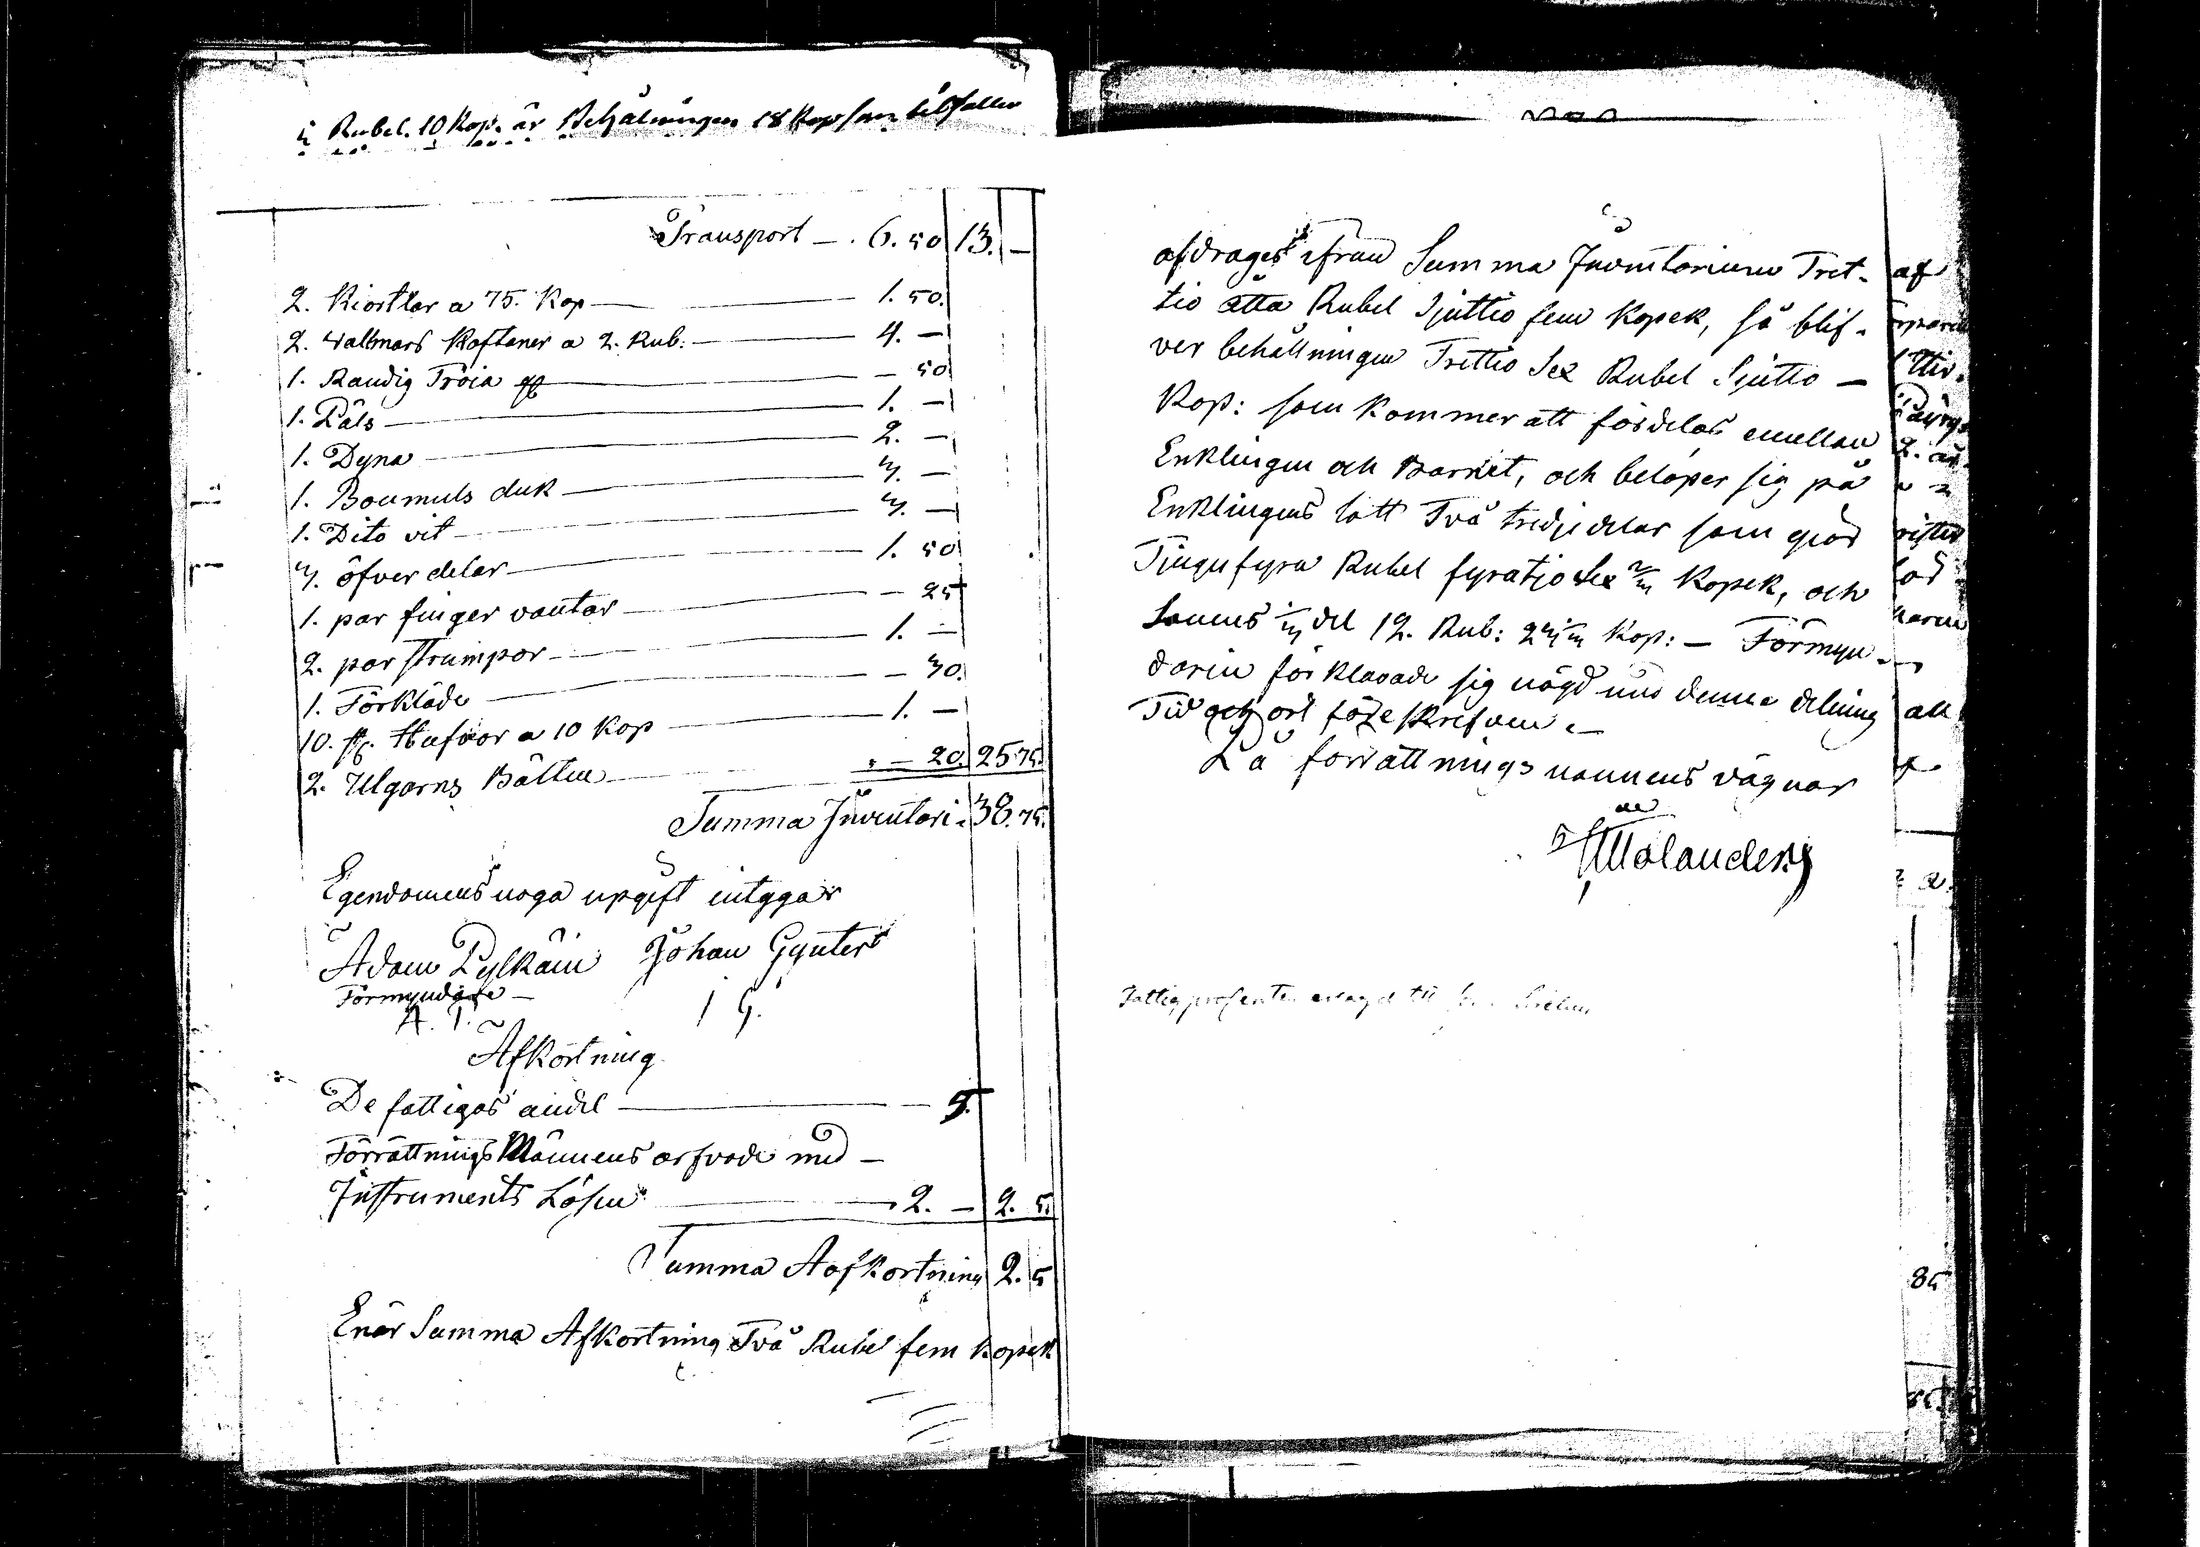 Rubel. 10 Kop. är Behålningen 18 Kop som tilfaller
Transport — . 6. 50 13. —
2. Kiortlar a 75. Kop — 1. 50.
2. Vallmars Koftaner a 2. Rub: — 4. —
1. Randig Tröia — 50
1. Päls — 1. —
1. Dyna — 2. —
1. Boumuls duk — 3. —
1. Dito vit — 3. —
3. öfver delar — 1. 50
1. par finger vantar — 25
2. par strumpor — 1. —
1. Förkläde — 30.
10. st. a 10 Kop — 1. —
2. Ulgarns — 20. 25 75.
Summa Inventari. 38. 75.
Egendomens noga upgift intygar
Adam Pylkäin Johan Gynter
Förmyndare —
A. P. I G.
Afkortning
De fattigas andel — 5.
Förrättnings Männens arfvode med —
Instruments Lösen — 2. — 2. 5.
Summa Aafkortning 2. 5
Enär Summa Afkortning Två Rubel fem kopek
afdrages ifrån Summa Inventarium Tret-
tio åtta Rubel Sjuttio fem Kopek, så blif-
ver behållningen Trettio Sex Rubel Sjutto —
Kop: som kommer att fördelas emellan
Enklingen och Barnet, och belöper sig på
Enklingens lott Två tredjedelar som giör
Tjugufyra Rubel fyratjo Sex 2/3 Kopek, och
Sonens 1/3 del 12. Rub: 23 1/3 Kop: — Förmyn-
daren förklarade sig nögd med denna delning
Tid och ort före skrefven. —
På förrättnings mannens vägnar
Molander
af
2.
att
85
85.